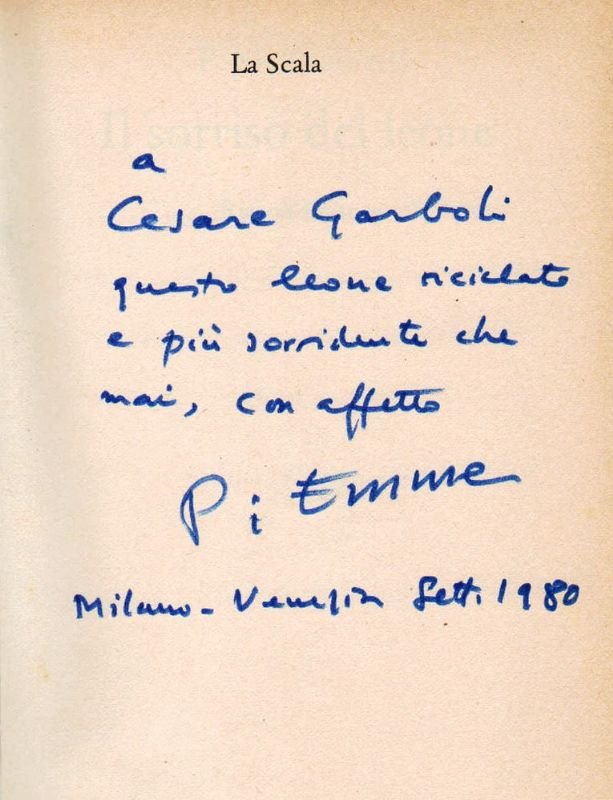 La Scala
Il sorriso del leone
a
Cesare Garboli
questo leone riciclato
e più sorridente che
mai, con affetto
Pi Emme
Milano - Venezia Sett. 1980